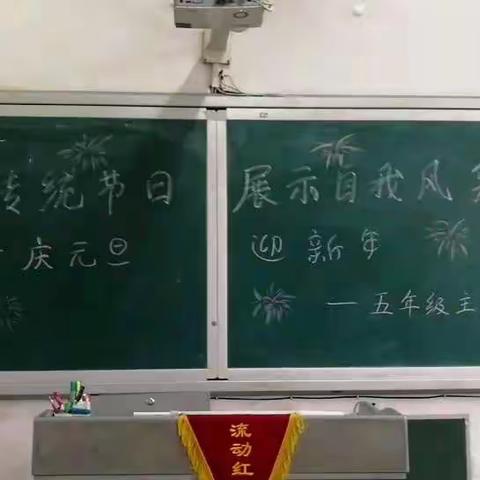 传统节日 展示自我风
庆元旦 迎新年
——五年级主
流动红